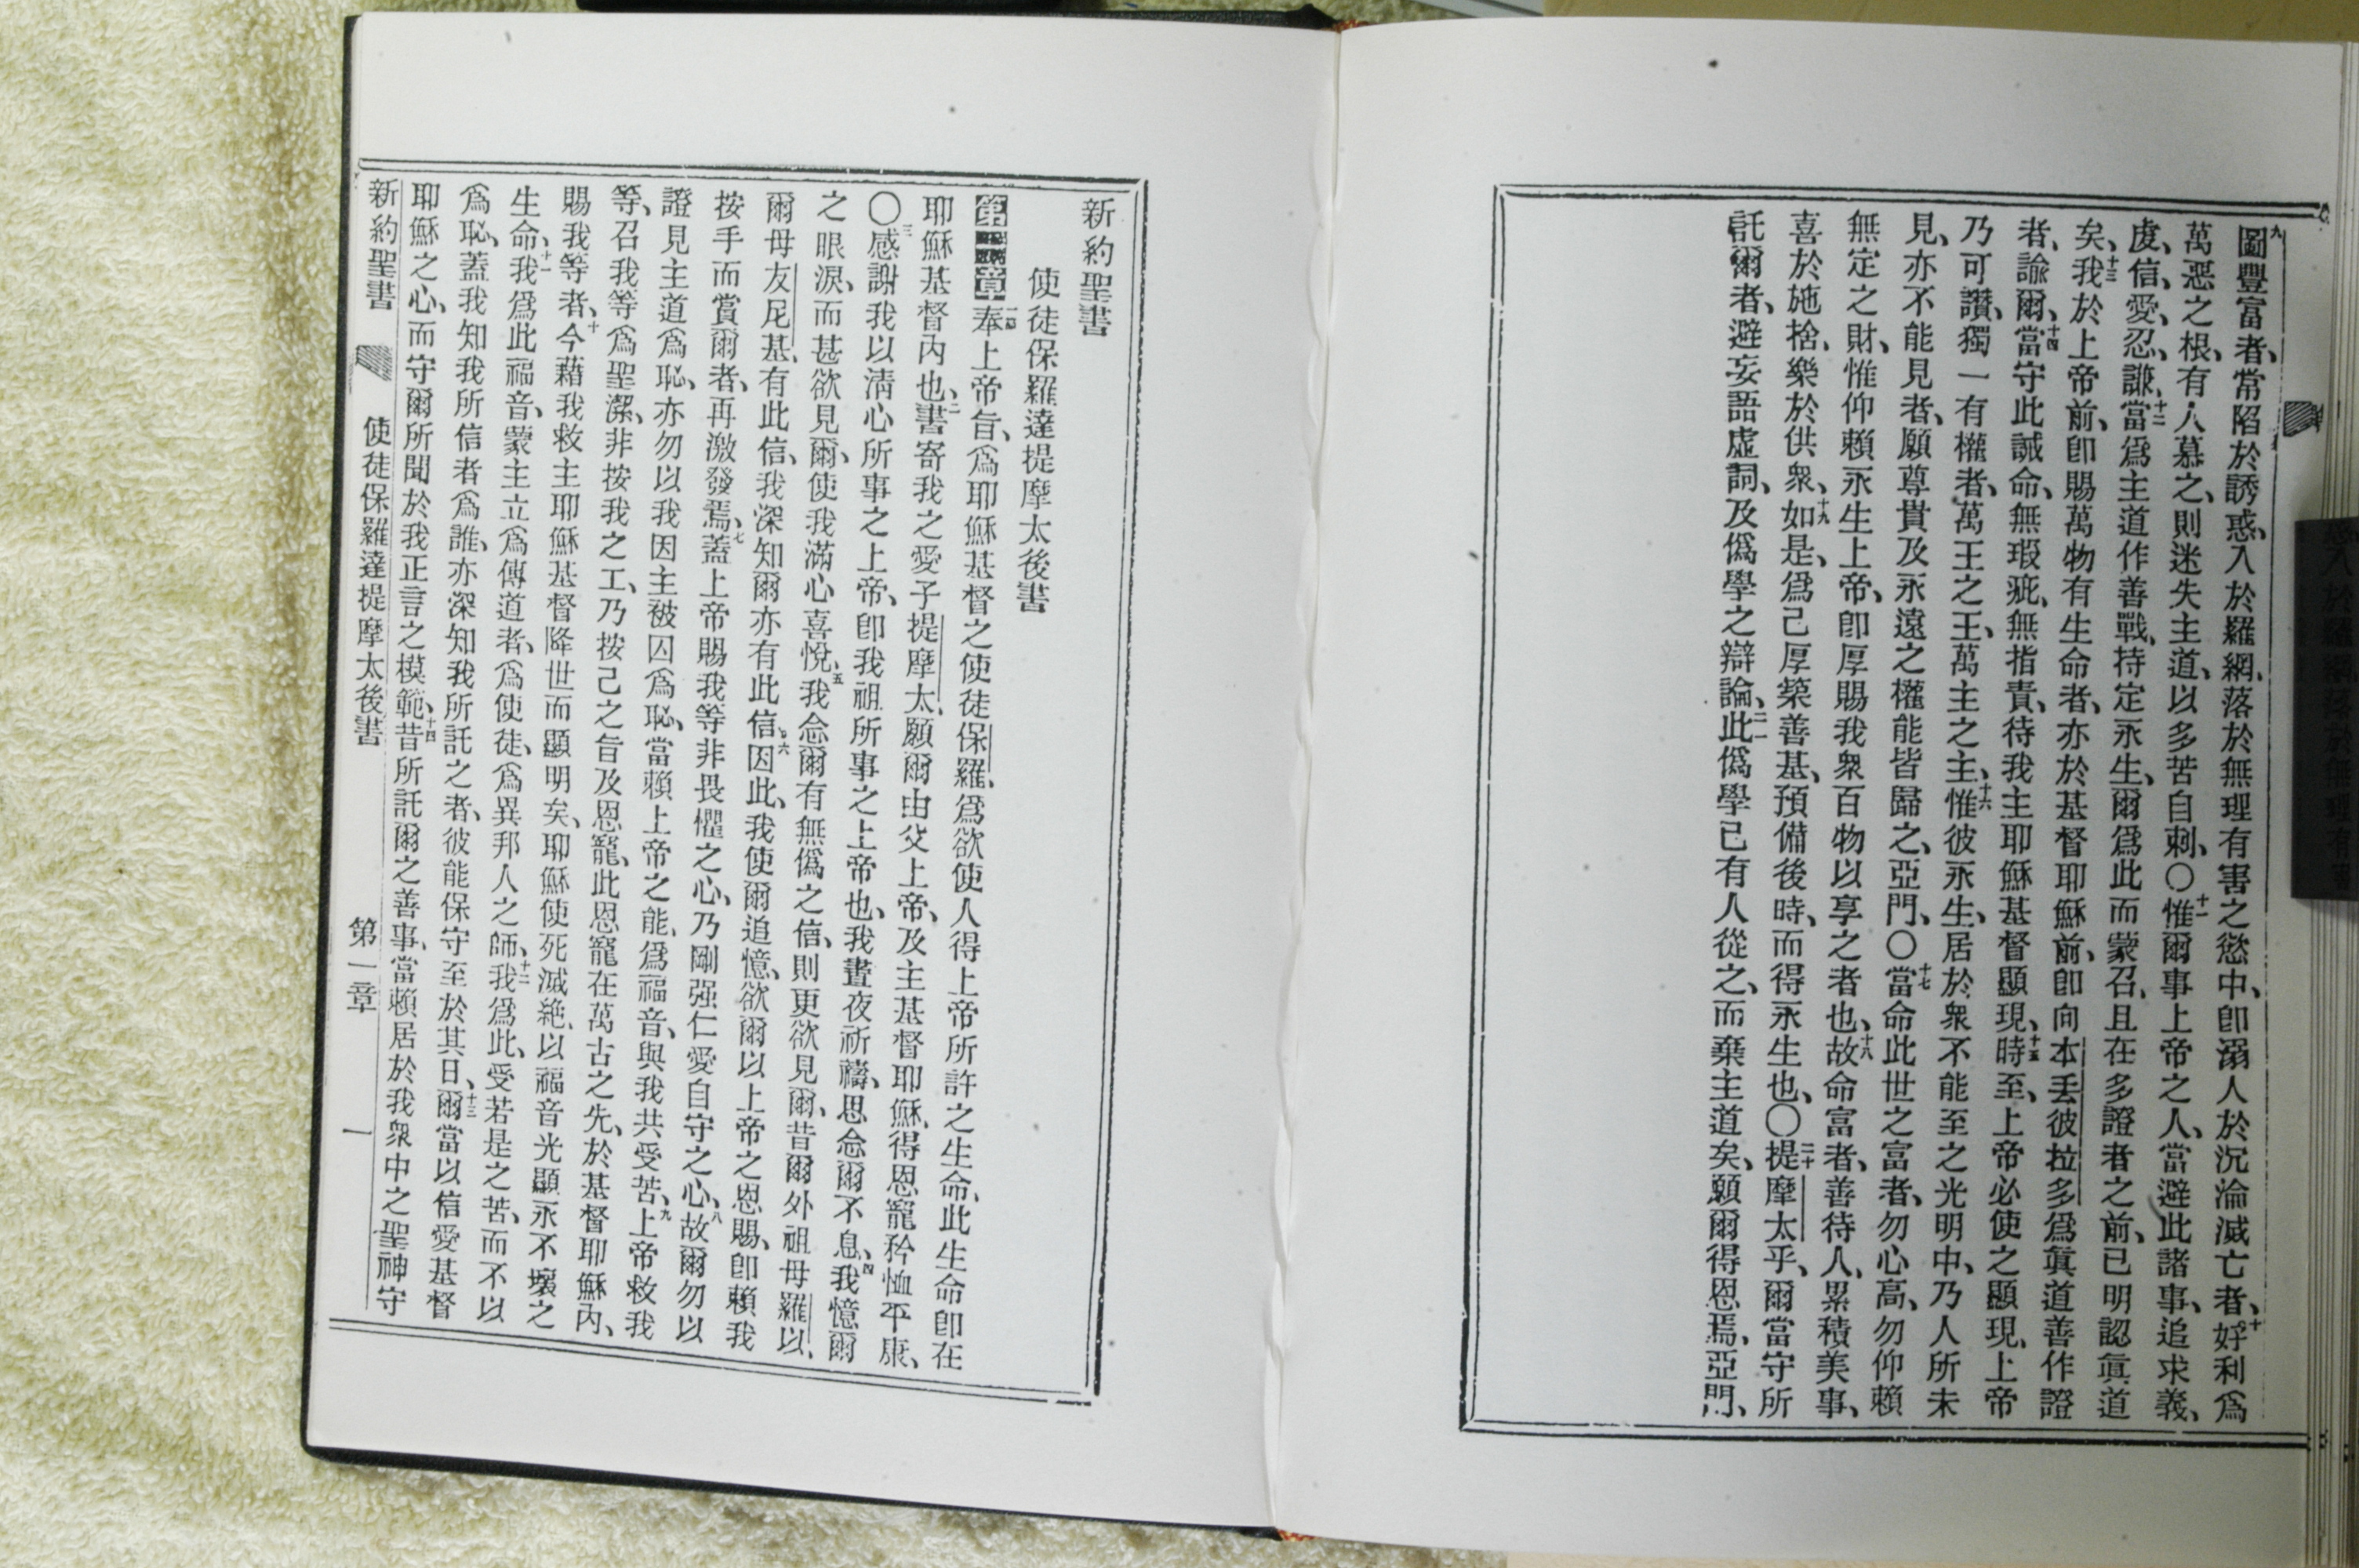 九圖豐富者、常陷於誘惑、入於羅網、落於無理有害之慾中、卽溺人於沉淪滅亡者、十好利爲
萬惡之根、有人慕之、則迷失主道、以多苦自刺、〇十一惟爾事上帝之人、當避此諸事、追求義、
虔、信、愛、忍、謙、十二當爲主道作善戰、持定永生、爾爲此而蒙召、且在多證者之前、已明認眞道
矣、十三我於上帝前、卽賜萬物有生命者、亦於基督耶穌前、卽向本丢彼拉多爲眞道善作證
者、諭爾、十四當守此誡命、無瑕疵、無指責、待我主耶穌基督顯現、十五時至、上帝必使之顯現、上帝
乃可讚、獨一有權者、萬王之王、萬主之主、十六惟彼永生、居於衆不能至之光明中、乃人所未
見、亦不能見者、願尊貴及永遠之權能皆歸之、亞門、〇十七當命此世之富者、勿心高、勿仰賴
無定之財、惟仰賴永生上帝、卽厚賜我衆百物以享之者也、十八故命富者、善待人、累積美事、
喜於施捨、樂於供衆、十九如是、爲己厚築善基、預備後時、而得永生也、〇二十提摩太乎、爾當守所
託爾者、避妄語虛詞、及僞學之辯論、二一此僞學已有人從之、而棄主道矣、願爾得恩焉、亞門、
新約聖書
使徒保羅達提摩太後書
第一章一奉上帝旨、爲耶穌基督之使徒保羅、爲欲使人得上帝所許之生命、此生命卽在
耶穌基督內也、二書寄我之愛子提摩太、願爾由父上帝、及主基督耶穌、得恩寵矜恤平康、
〇三感謝我以淸心所事之上帝、卽我祖所事之上帝也、我晝夜祈禱、思念爾不息、四我憶爾
之眼淚、而甚欲見爾、使我滿心喜悅、五我念爾有無僞之信、則更欲見爾、昔爾外祖母羅以、
爾母友尼基、有此信、我深知爾亦有此信、六因此、我使爾追憶、欲爾以上帝之恩賜、卽賴我
按手而賞爾者、再激發焉、七蓋上帝賜我等非畏懼之心、乃剛强仁愛自守之心、八故爾勿以
證見主道爲恥、亦勿以我因主被囚爲恥、當賴上帝之能、爲福音、與我共受苦、九上帝救我
等、召我等爲聖潔、非按我之工、乃按己之旨及恩寵、此恩寵在萬古之先、於基督耶穌內、
賜我等者、十今藉我救主耶穌基督降世而顯明矣、耶穌使死滅絕、以福音光顯永不壞之
生命、十一我爲此福音、蒙主立爲傳道者、爲使徒、爲異邦人之師、十二我爲此、受若是之苦、而不以
爲恥、蓋我知我所信者爲誰、亦深知我所託之者、彼能保守至於其日、十三爾當以信愛基督
耶穌之心、而守爾所聞於我正言之模範、十四昔所託爾之善事、當賴居於我衆中之聖神守
新約聖書 使徒保羅達提摩太後書 第一章 一